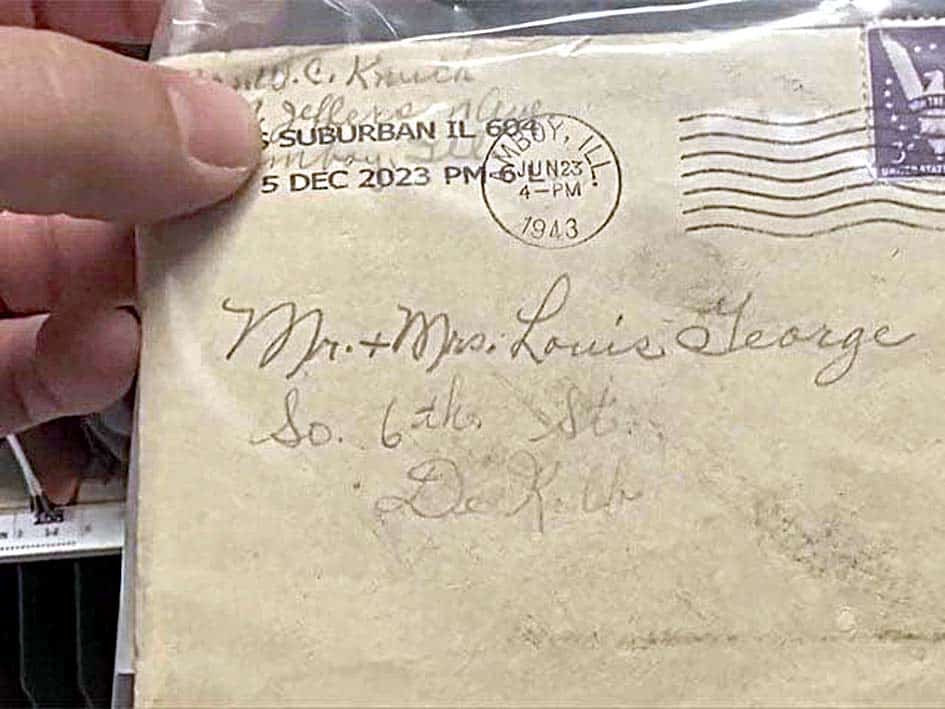 W. C. Knuck
Jefferson Ave
S SUBURBAN IL 604
Amboy, Ill.
5 DEC 2023 PM 6 L
AMBOY, ILL.
JUN 23
4-PM
1943
3
UNITED STATES
Mr. + Mrs. Louis George
So. 6th. St.
De Kalb